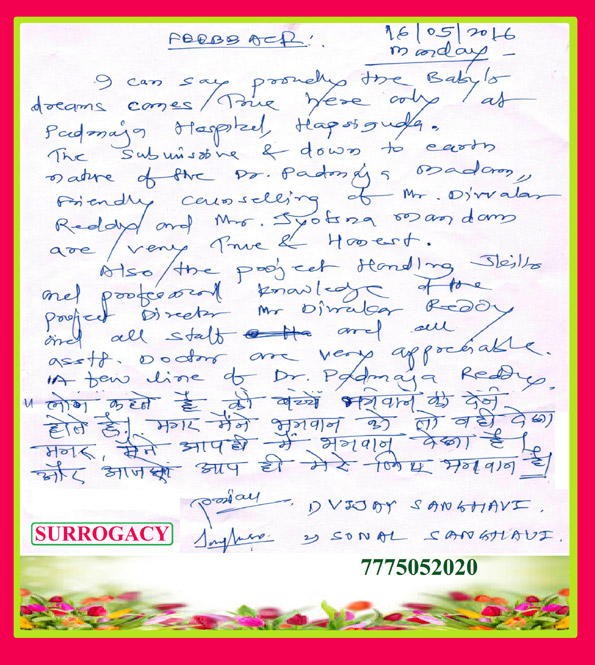 FEEDBACK:
16/05/2016
Monday -
I can say proudly the Baby's
dreams comes True here only at
Padmaja Hospital, Habsiguda.
The submissive & down to earth
nature of the Dr. Padmaja madam,,
Friendly counselling of Mr. Divvakar
Reddy and Mrs. Jyotsna mandam
are very True & Honest.
Also the project Handling Skills
and professional knowledge of the
project Director Mr Divvakar Reddy
and all staff and all
asstt. Doctor are very appreciable.
A few line of Dr. Padmaja Reddy.
" लोग कहते है की बच्चे भगवान की देन
होते है। मगर मैंने भगवान को तो नही देखा
मगर, मैंने आपही में भगवान देखा है।
और आप ही मेरे लिए भगवान है।
1) VIJAY SANGHAVI.
2) SONAL SANGHAVI.
SURROGACY
7775052020